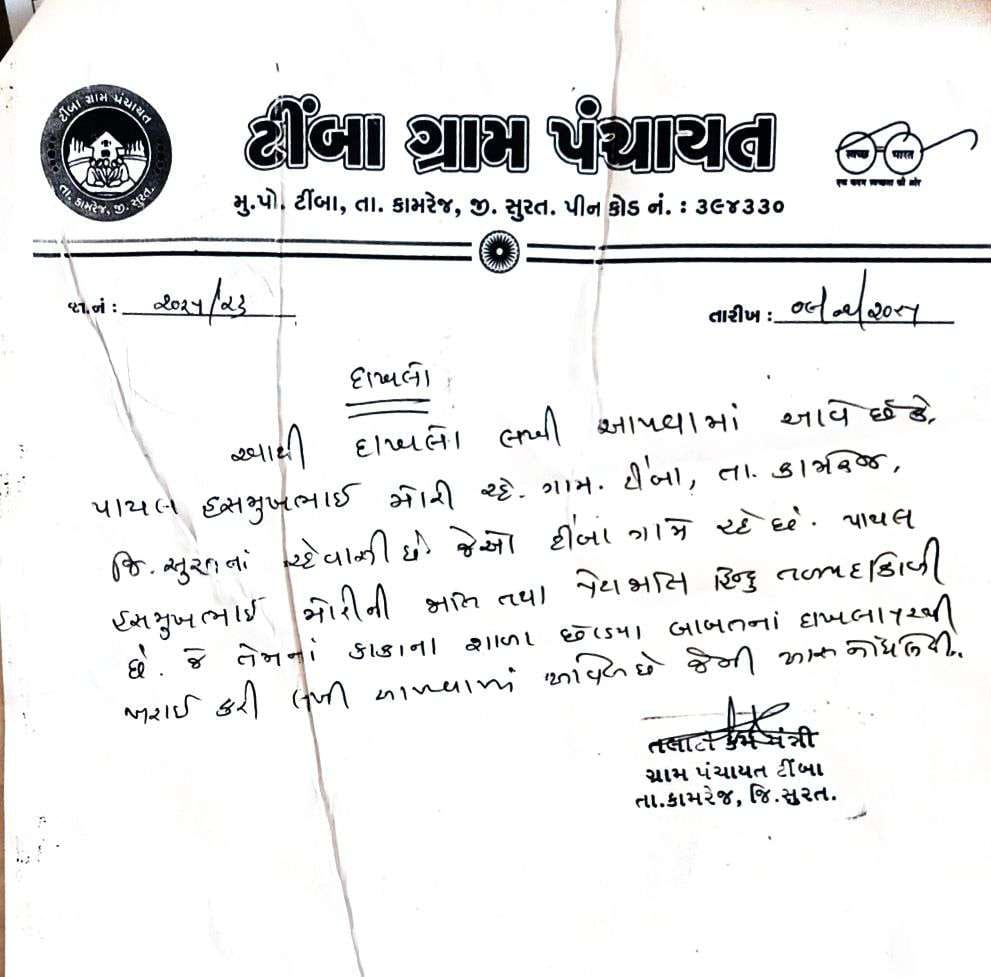 ટીંબા ગ્રામ પંચાયત
તા. કામરેજ, જી. સુરત.
ટીંબા ગ્રામ પંચાયત
स्वच्छ भारत
एक कदम स्वच्छता की ओर
મુ.પો. ટીંબા, તા. કામરેજ, જી. સુરત. પીન કોડ નં. : ૩૯૪૩૩૦
જા.નં : ૨૦૨૫/૨૩
તારીખ : ૦૯/ /૨૦૨૫
દાખલો
આથી દાખલો લખી આપવામાં આવે છે કે,
પાયલ હસમુખભાઈ મોરી રહે. ગામ. ટીંબા, તા. કામરેજ,
જિ. સુરતનાં રહેવાસી છે. જેઓ ટીંબા ગામે રહે છે. પાયલ
હસમુખભાઈ મોરીની જાતિ તથા પેટાજાતિ હિન્દુ તળપદા કોળી
છે. જે તેમનાં કાકાના શાળા છોડ્યા બાબતનાં દાખલા પરથી
ખરાઈ કરી લખી આપવામાં આવેલ છે જેની ખાસ નોંધ લેવી.
તલાટી કમ મંત્રી
ગ્રામ પંચાયત ટીંબા
તા.કામરેજ, જિ.સુરત.